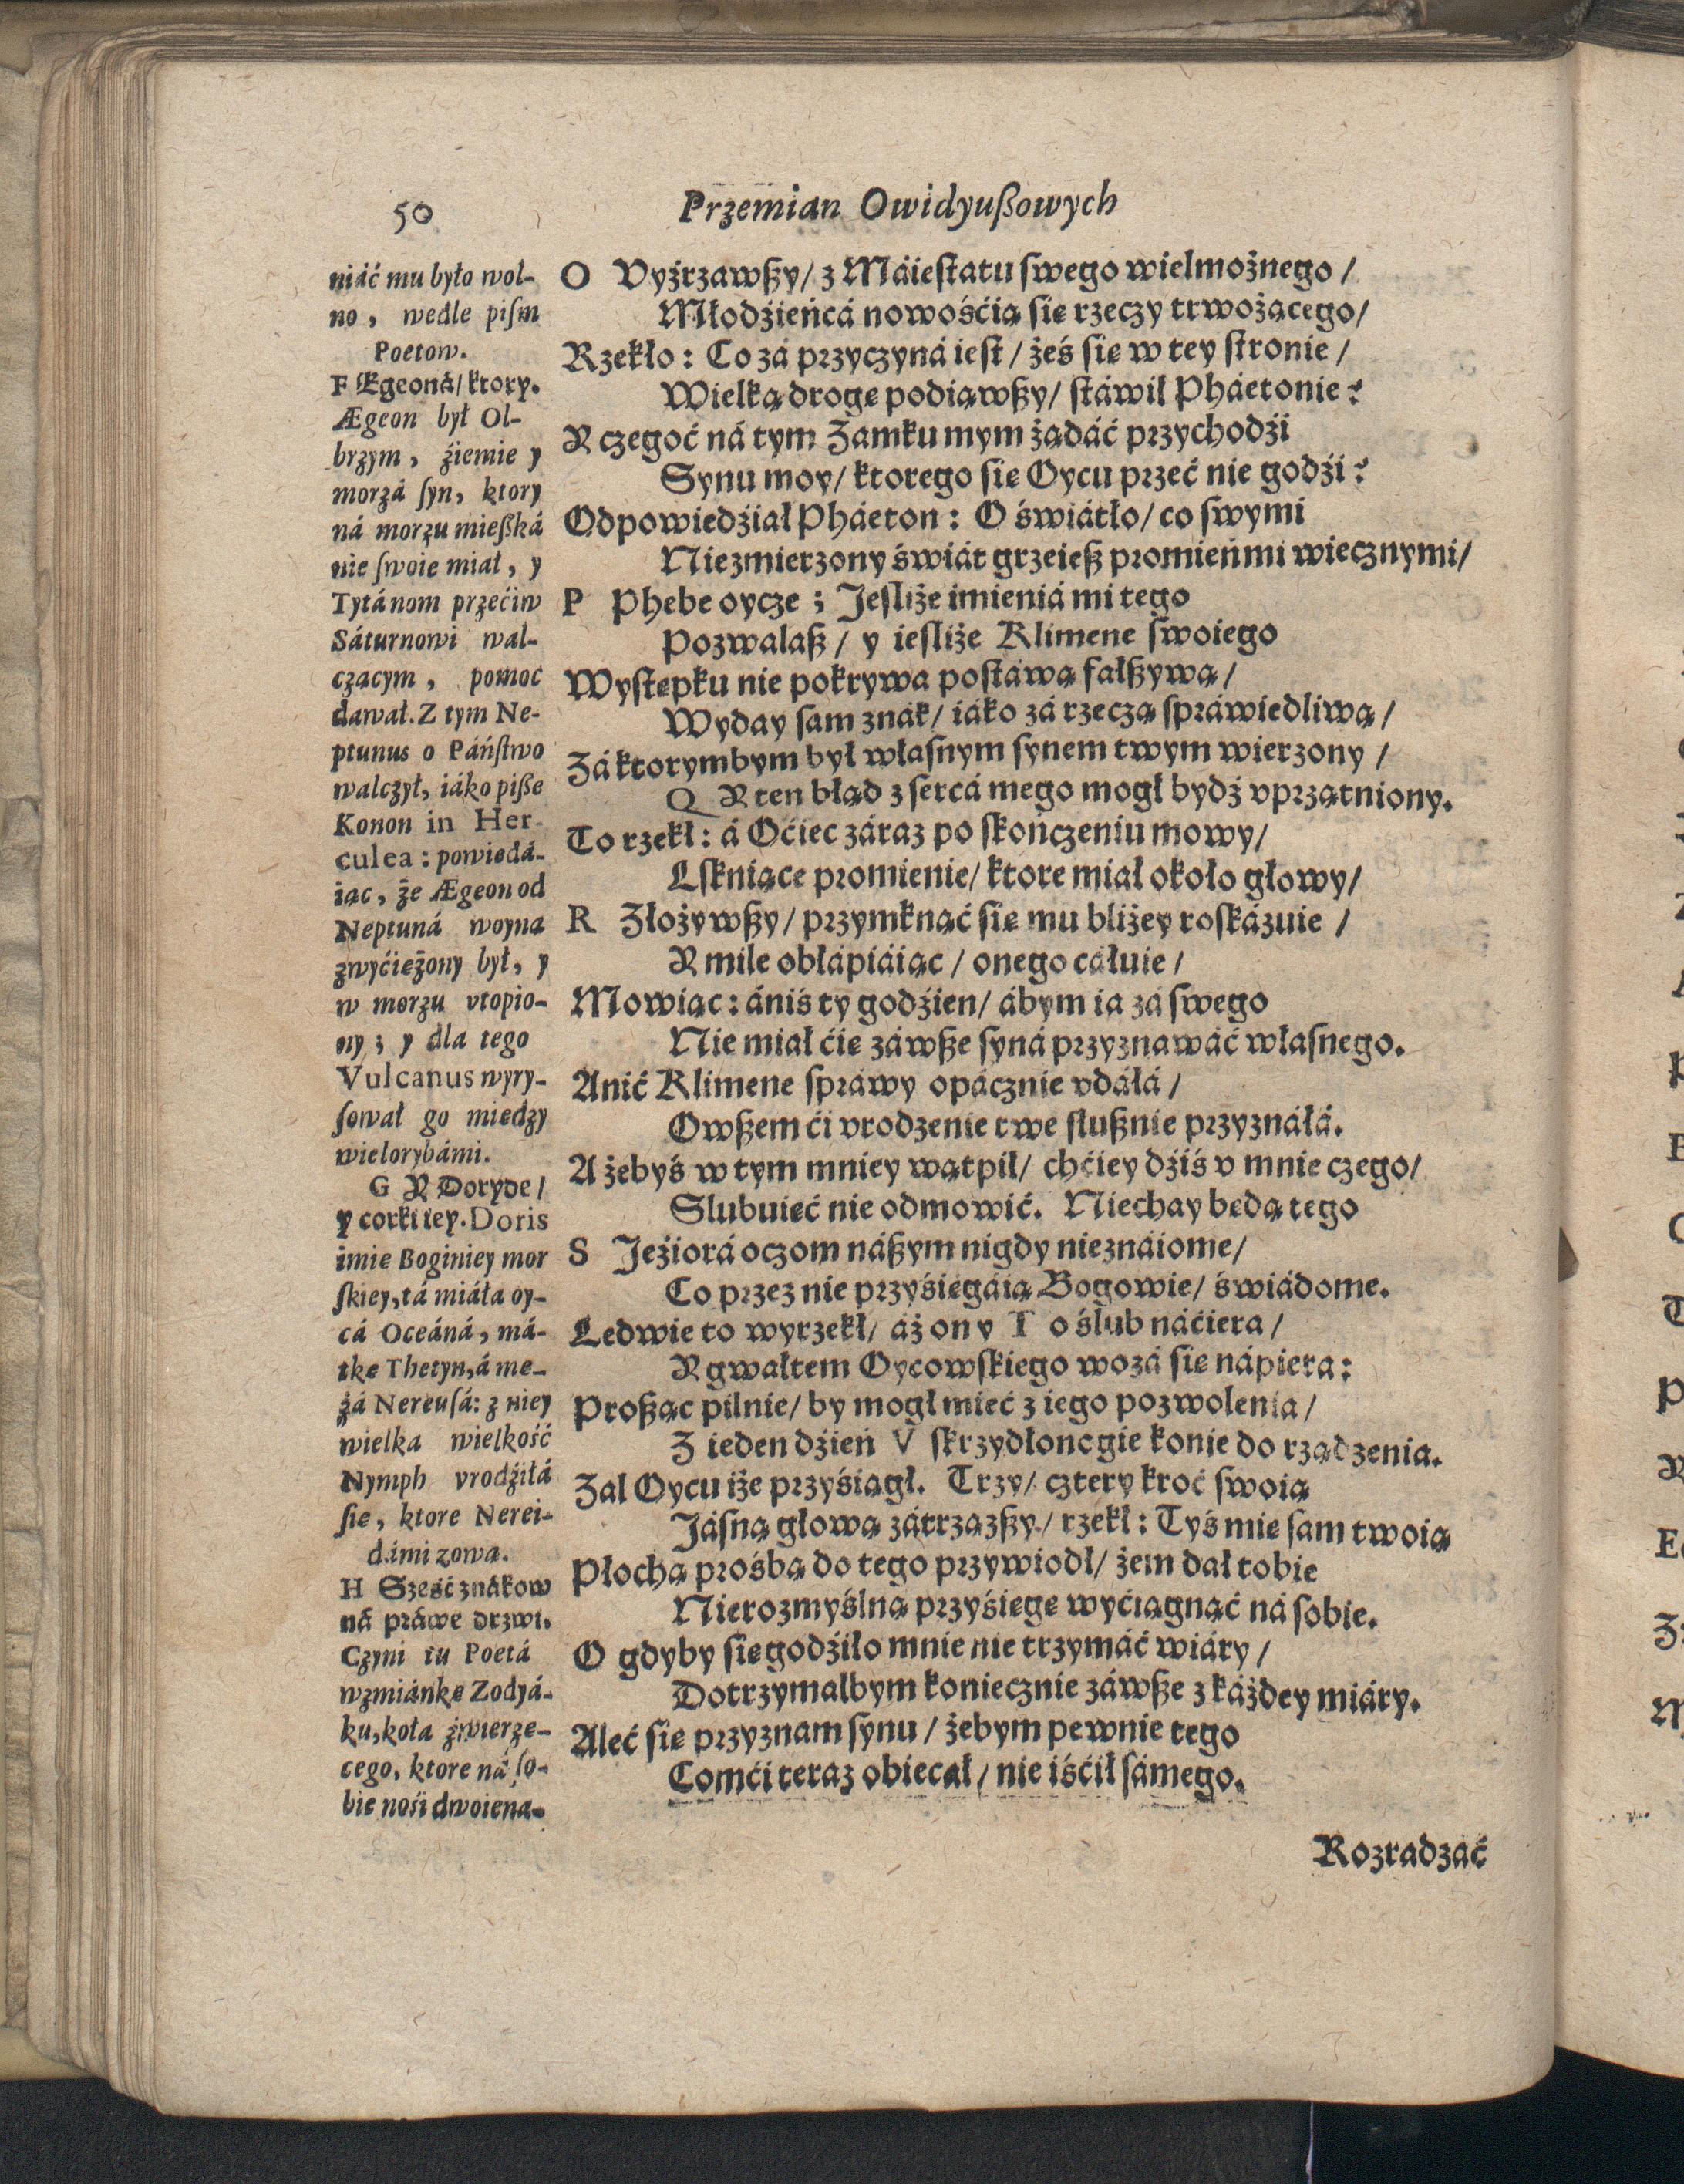 50
Przemian Owidyußowych
niáć mu było wol-
no, wedle piſm
Poetow.
F Ægeoná/ ktory.
Ægeon był Ol-
brzym, źiemie y
morzá ſyn, ktory
ná morzu mießká
nie ſwoie miał, y
Tytánom przećiw
Sáturnowi wal-
czącym, pomoc
dawał. Z tym Ne-
ptunus o Páńſtwo
walczył, iáko piße
Konon in Her-
culea: powiedá-
iąc, że Ægeon od
Neptuná woyną
zwyćiężony był, y
w morzu vtopio-
ny; y dla tego
Vulcanus wyry-
ſował go miedzy
wielorybámi.
G Y Doryde/
y corki iey. Doris
imie Boginiey mor
ſkiey, tá miáła oy-
cá Oceáná, má-
tkę Thetyn, á mę-
żá Nereuſá: z niey
wielka wielkość
Nymph vrodźiłá
ſie, ktore Nerei-
dámi zową.
H Sześć znákow
ná práwe drzwi.
Czyni tu Poetá
wzmiánkę Zodyá-
ku, koła źwierzę-
cego, ktore ná ſo-
bie nośi dwoiena-
O Vyźrzawßy/ z Máieſtatu ſwego wielmożnego/
Młodźieńcá nowośćią ſię rzeczy trwożącego/
Rzekło: Co zá przyczyná ieſt/ żeś ſię w tey ſtronie/
Wielką drogę podiąwßy/ ſtáwił Pháetonie?
Y czegoć ná tym Zamku mym żądáć przychodźi
Synu moy/ ktorego ſię Oycu przeć nie godźi?
Odpowiedźiał Pháeton: O świátło/ co ſwymi
Niezmierzony świát grzeieß promieńmi wiecznymi/
P Phebe oycze; Jeſliże imieniá mi tego
Pozwalaß/ y ieſliże Klimene ſwoiego
Wyſtępku nie pokrywa poſtáwą fałßywą/
Wyday ſam znák/ iáko zá rzeczą ſpráwiedliwą/
Zá ktorymbym był właſnym ſynem twym wierzony/
Q Y ten błąd z ſercá mego mogł bydź vprzątniony.
To rzekł: á Oćiec záraz po ſkończeniu mowy/
Lſkniące promienie/ ktore miał około głowy/
R Złożywßy/ przymknąć ſię mu bliżey roſkázuie/
Y mile obłápiáiąc/ onego cáłuie/
Mowiąc: ániś ty godźien/ ábym ia zá ſwego
Nie miał ćię záwße ſyná przyznawáć właſnego.
Anić Klimene ſpráwy opácznie vdáłá/
Owßem ći vrodzenie twe ſłußnie przyznáłá.
A żebyś w tym mniey wątpił/ chćiey dźiś v mnie czego/
Slubuieć nie odmowić. Niechay będą tego
S Jeźiorá oczom náßym nigdy nieznáiome/
Co przez nie przyśięgáią Bogowie/ świádome.
Ledwie to wyrzekł/ áż on y T o ślub náćiera/
Y gwałtem Oycowſkiego wozá ſię nápiera:
Proßąc pilnie/ by mogł mieć z iego pozwolenia/
Z ieden dźień V ſkrzydłonogie konie do rządzenia.
Zal Oycu iże przyśiągł. Trzy/ cztery kroć ſwoią
Jáſną głową zátrzązßy/ rzekł: Tyś mie ſam twoią
Płochą prośbą do tego przywiodł/ żem dał tobie
Nierozmyślną przyśięgę wyćiągnąć ná ſobie.
O gdyby ſię godźiło mnie nie trzymáć wiáry/
Dotrzymałbym koniecznie záwße z káżdey miáry.
Aleć ſię przyznam ſynu/ żebym pewnie tego
Comći teraz obiecał/ nie iśćił ſámego.
Rozradzáć